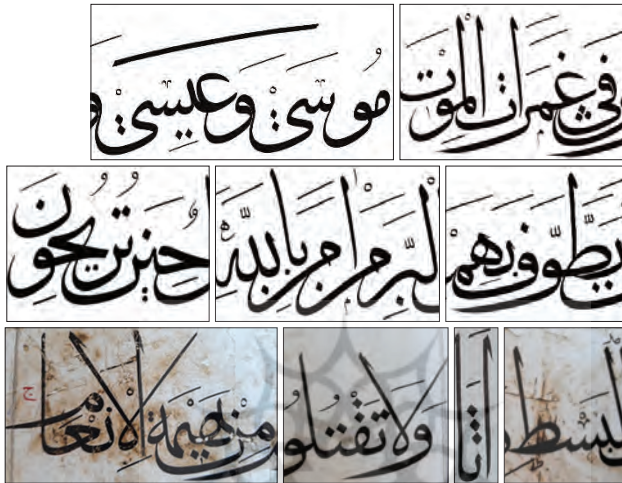 فِي غَمَرَاتِ الْمَوْتِ مُوسَىٰ وَعِيسَىٰ وَ
يَطَّوَّفَ بِهِمَ الْبِرَّ مَنْ اٰمَنَ بِاللّٰهِ حِينَ تُرِيحُونَ
الْبَسْطِ وَلَا تَقْتُلُو مِنْ بَهِيمَةِ الْاَنْعَامِ
ج